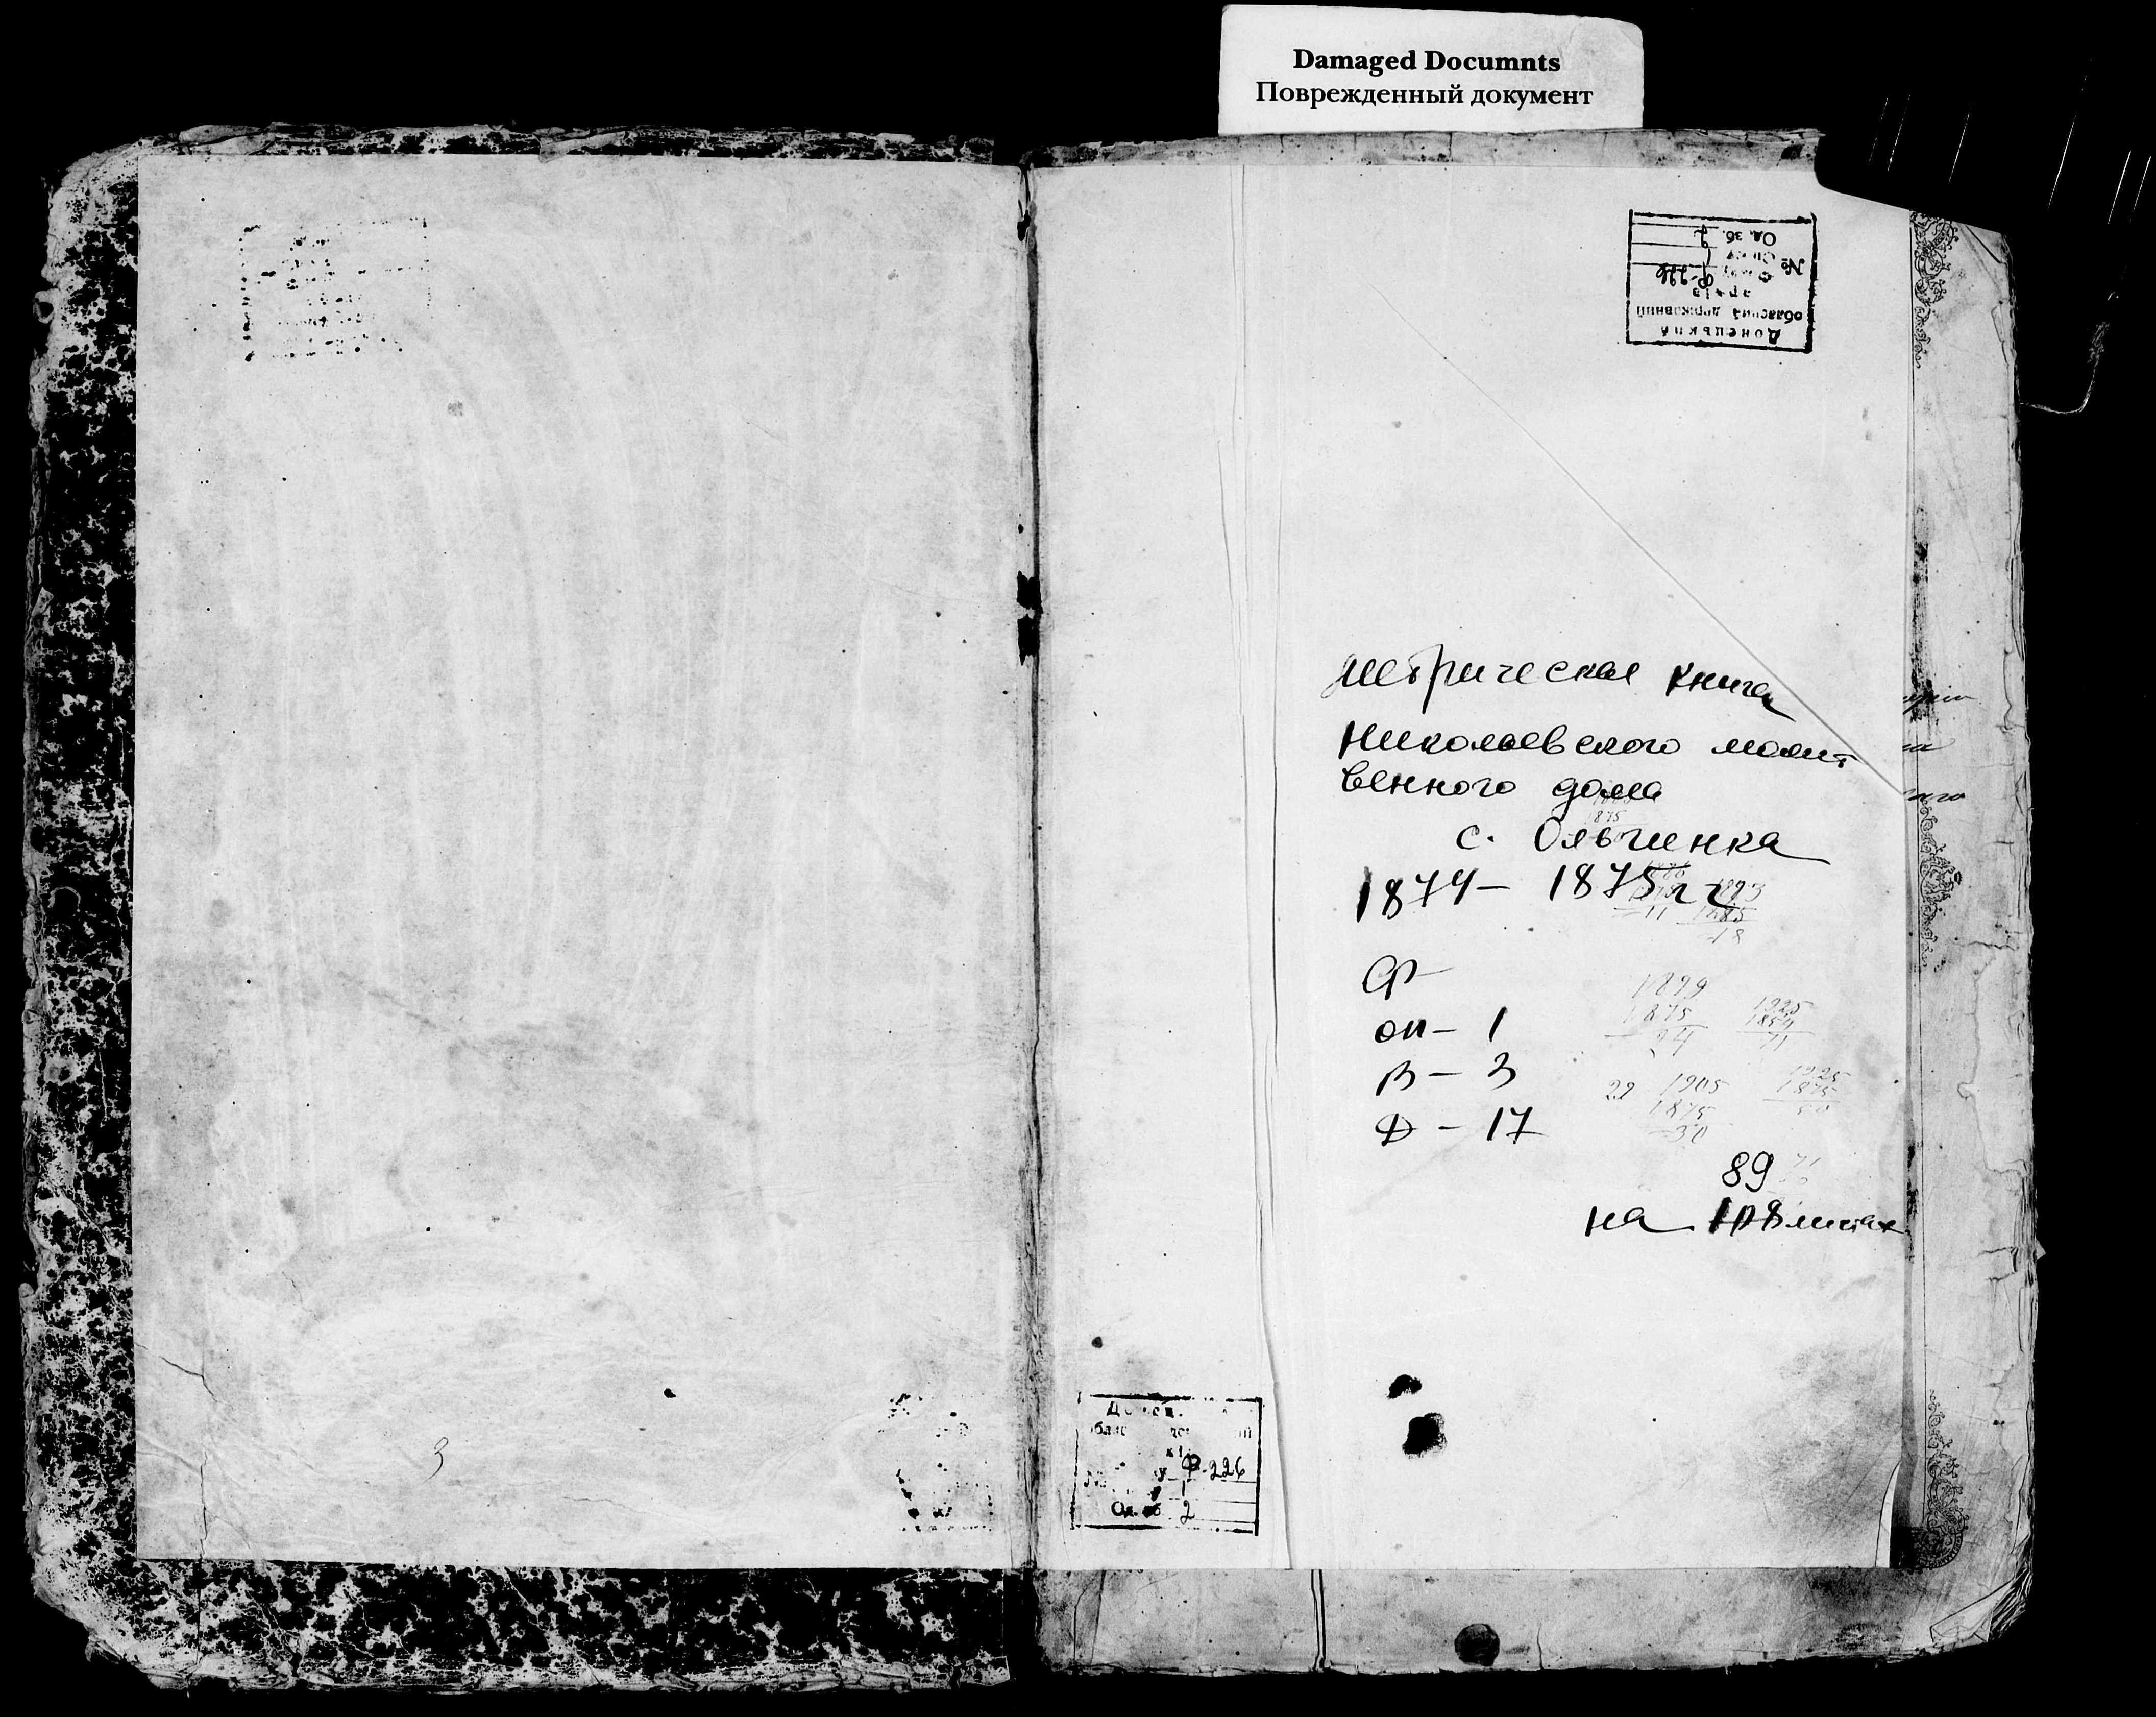 Damaged Documnts
Поврежденный документ
Донецький
обласний державний
архів
№
Ф-226
1
Од. зб. 2
Метрическая книга
Николаевского молит
венного дома
с. Ольгинка
1874 – 1875 г г
Ф
оп – 1
В – 3
Д – 17
1899
1875
24
1925
1854
71
22 1905
1875
30
1925
1875
50
89
на 108 листах
3
Ф-226
1
Од. зб 2